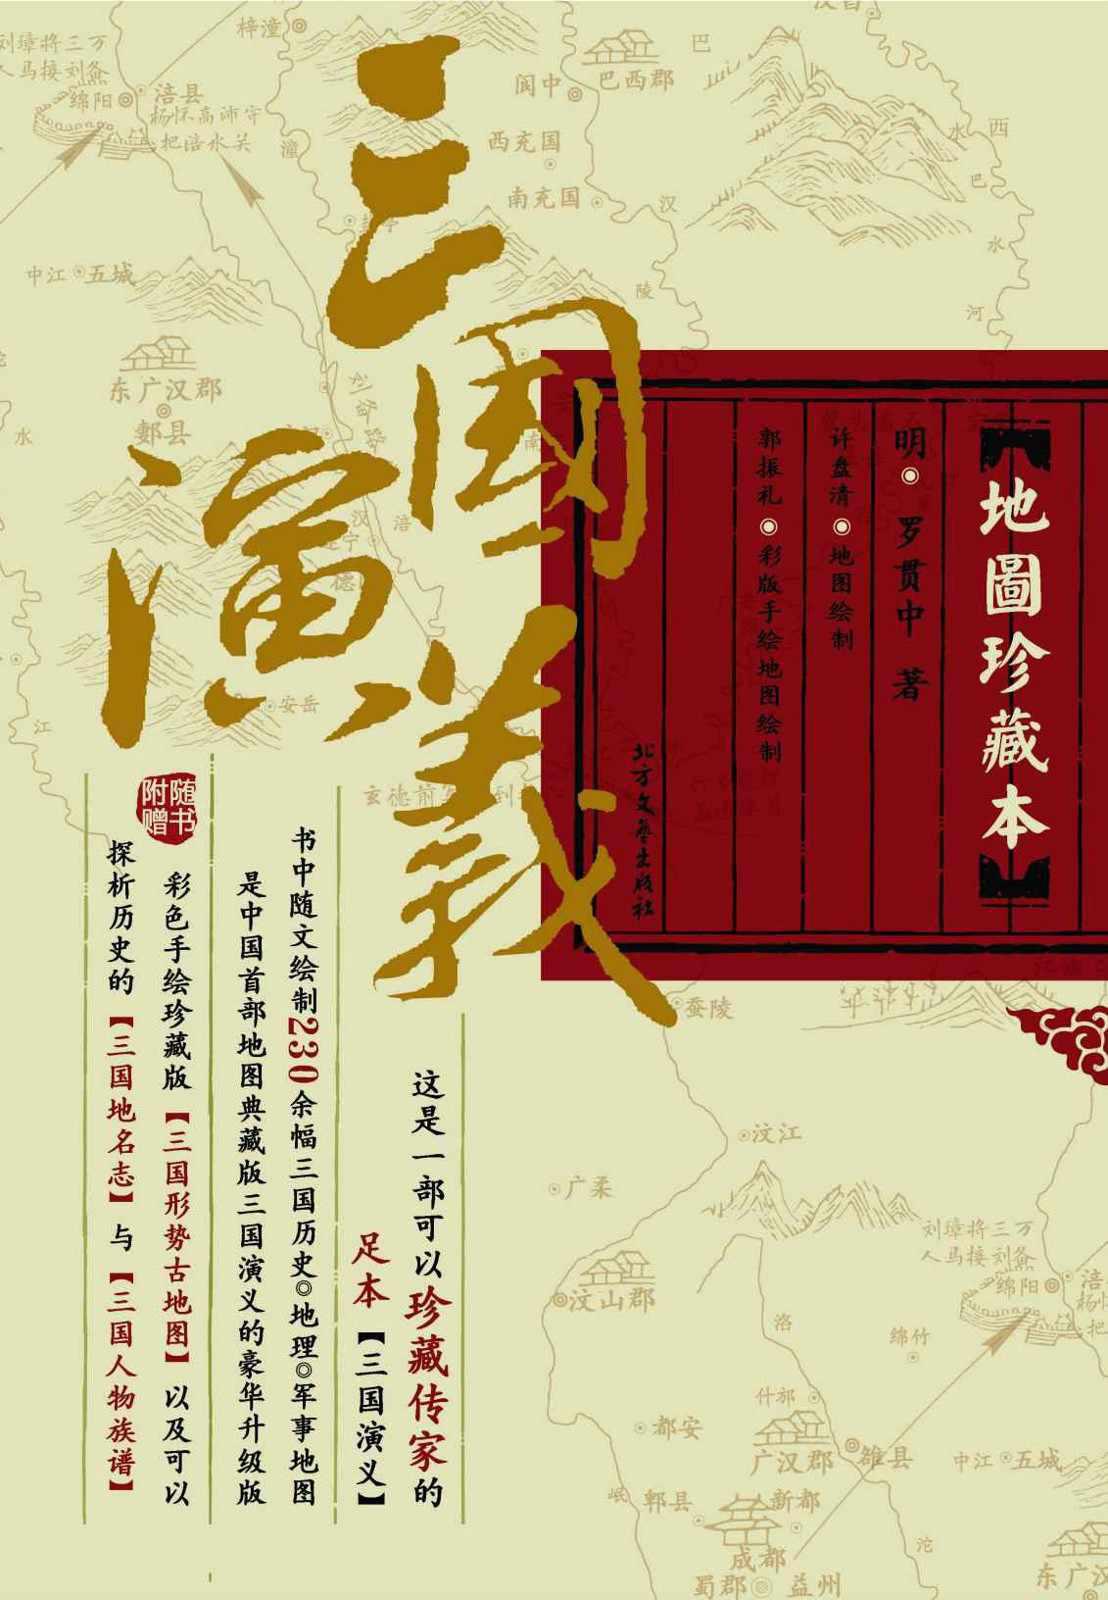 三國演義
【地圖珍藏本】
明◉罗贯中 著
许盘清◉地图绘制
郭振礼◉彩版手绘地图绘制
北方文艺出版社
这是一部可以珍藏传家的
足本【三国演义】
书中随文绘制230余幅三国历史◎地理◎军事地图
是中国首部地图典藏版三国演义的豪华升级版
随书
附赠
彩色手绘珍藏版【三国形势古地图】以及可以
探析历史的【三国地名志】与【三国人物族谱】
梓潼
刘璋将三万
人马接刘备
绵阳
涪县
杨怀高沛守
把涪水关
潼
阆中
巴西郡
巴
西充国
南充国
汉
西
水
巴
水
河
陵
中江
五城
东广汉郡
郪县
水
刘备路
汉
涪
德
安岳
江
玄德前
到
蚕陵
汶江
广柔
汶山郡
刘璋将三万
人马接刘备
绵阳
涪
把
洛
绵竹
什邡
都安
广汉郡
雒县
中江
五城
岷
郫县
新都
成都
蜀郡
益州
沱
东广汉